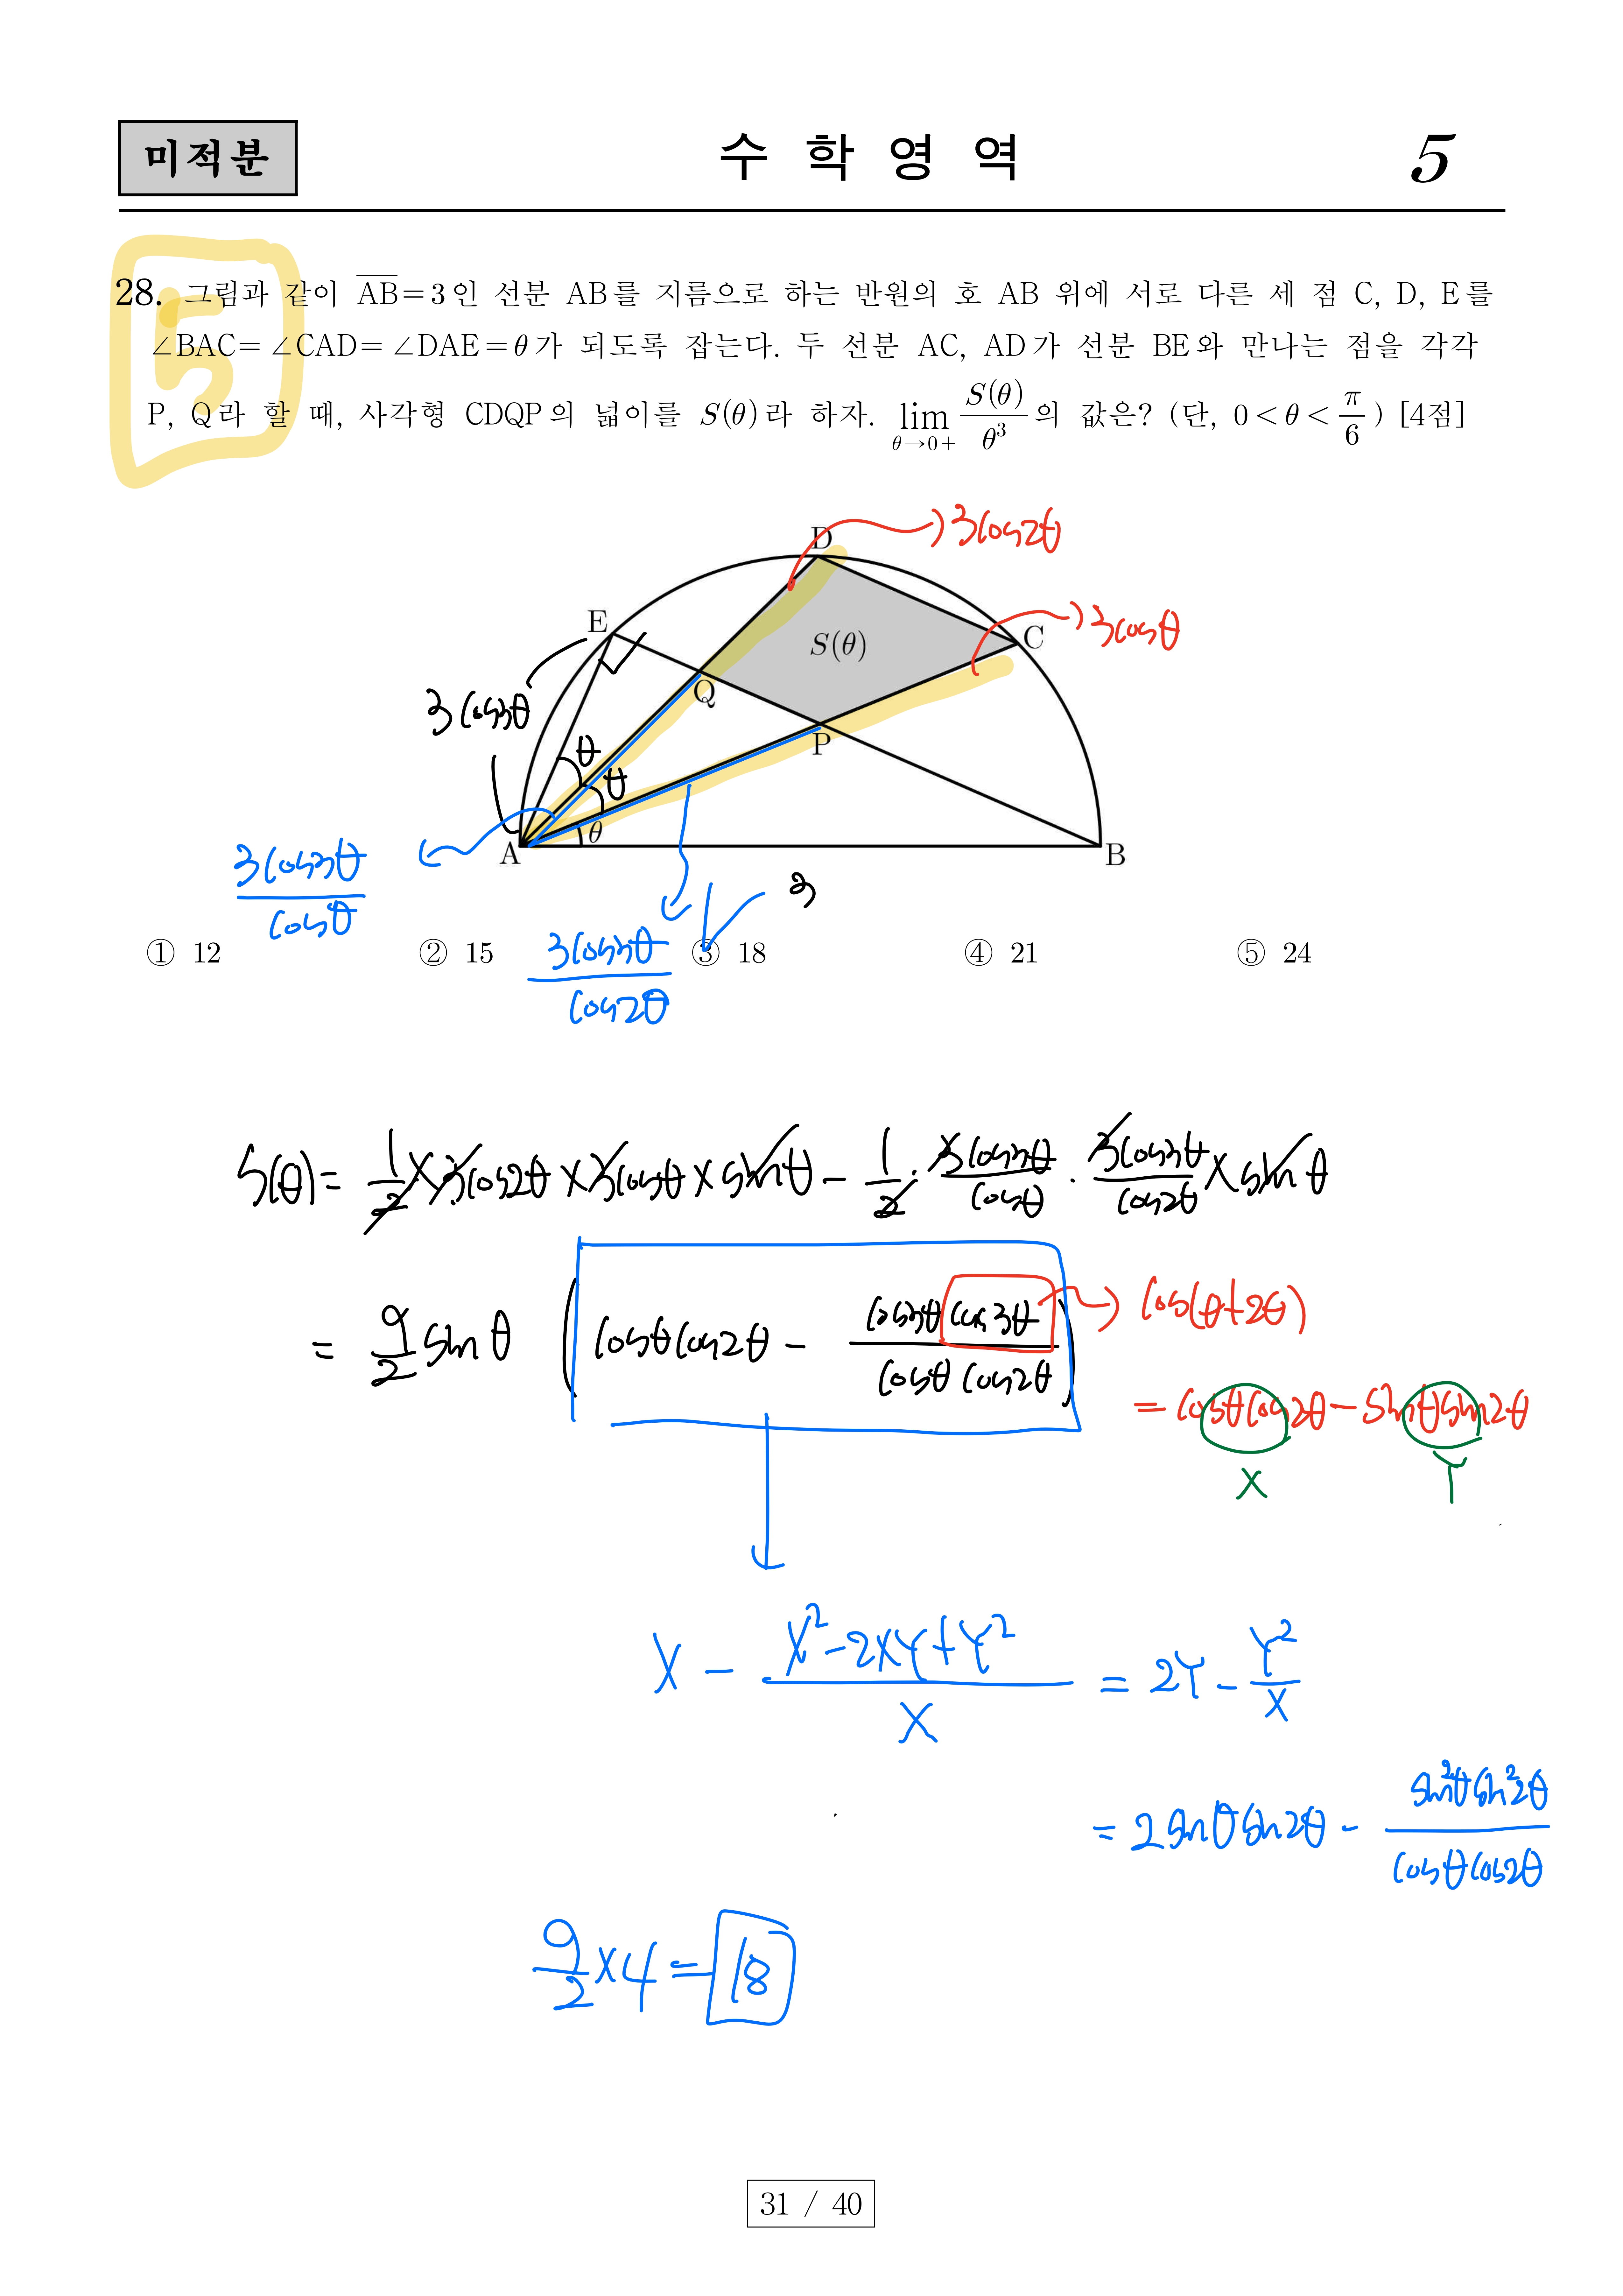 미적분
수 학 영 역
5
5
28. 그림과 같이 AB=3인 선분 AB를 지름으로 하는 반원의 호 AB 위에 서로 다른 세 점 C, D, E를
∠BAC=∠CAD=∠DAE=θ가 되도록 잡는다. 두 선분 AC, AD가 선분 BE와 만나는 점을 각각
P, Q라 할 때, 사각형 CDQP의 넓이를 S(θ)라 하자. lim θ→0+ S(θ)/θ³ 의 값은? (단, 0<θ<π/6) [4점]
D
3cos2θ
E
S(θ)
C
3cosθ
Q
3cos3θ
P
θ
θ
θ
A
B
3cos3θ/cosθ
3
3cos3θ/cos2θ
① 12 ② 15 ③ 18 ④ 21 ⑤ 24
S(θ)= 1/2 × 3cos2θ × 3cosθ × sinθ - 1/2 · 3cos3θ/cosθ · 3cos3θ/cos2θ × sinθ
= 9/2 sinθ ( cosθcos2θ - cos3θ cos3θ/cosθ cos2θ )
cos(θ+2θ)
= cosθcos2θ - sinθsin2θ
X Y
X - X²-2XY+Y²/X = 2Y - Y²/X
= 2sinθsin2θ - sin²θsin²2θ/cosθcos2θ
9/2 × 4 = 18
31 / 40